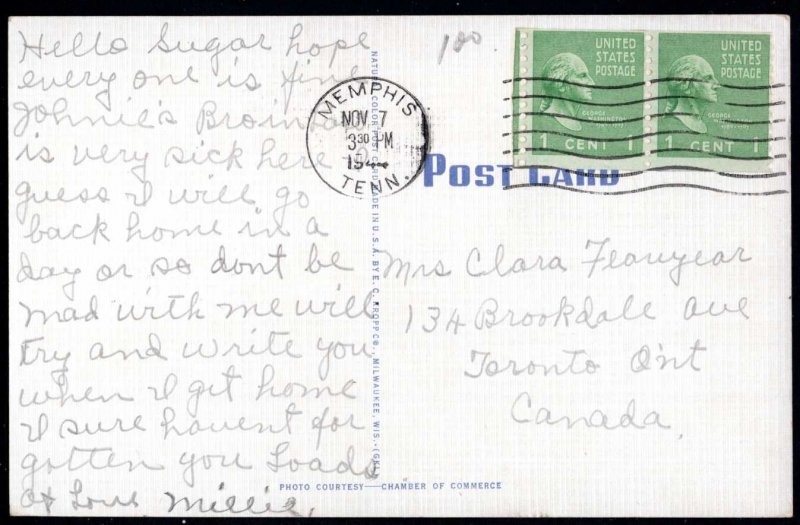 Hello Sugar hope
every one is fine
Johnie's
is very sick here
guess I will go
back home in a
day or so dont be
mad with me will
try and write you
when I get home
I sure havent for
gotten you Loads
of Love Millie.
100
MEMPHIS
NOV 7
3 30 PM
19
TENN.
UNITED
STATES
POSTAGE
GEORGE
WASHINGTON
1 CENT 1
UNITED
STATES
POSTAGE
GEORGE
WASHINGTON
1 CENT 1
POST CARD
Mrs Clara
134 Brookdale ave
Toronto Ont
Canada,
NATURAL COLOR POST CARD MADE IN U.S.A. BY E. C. KROPP CO., MILWAUKEE, WIS.
PHOTO COURTESY—CHAMBER OF COMMERCE